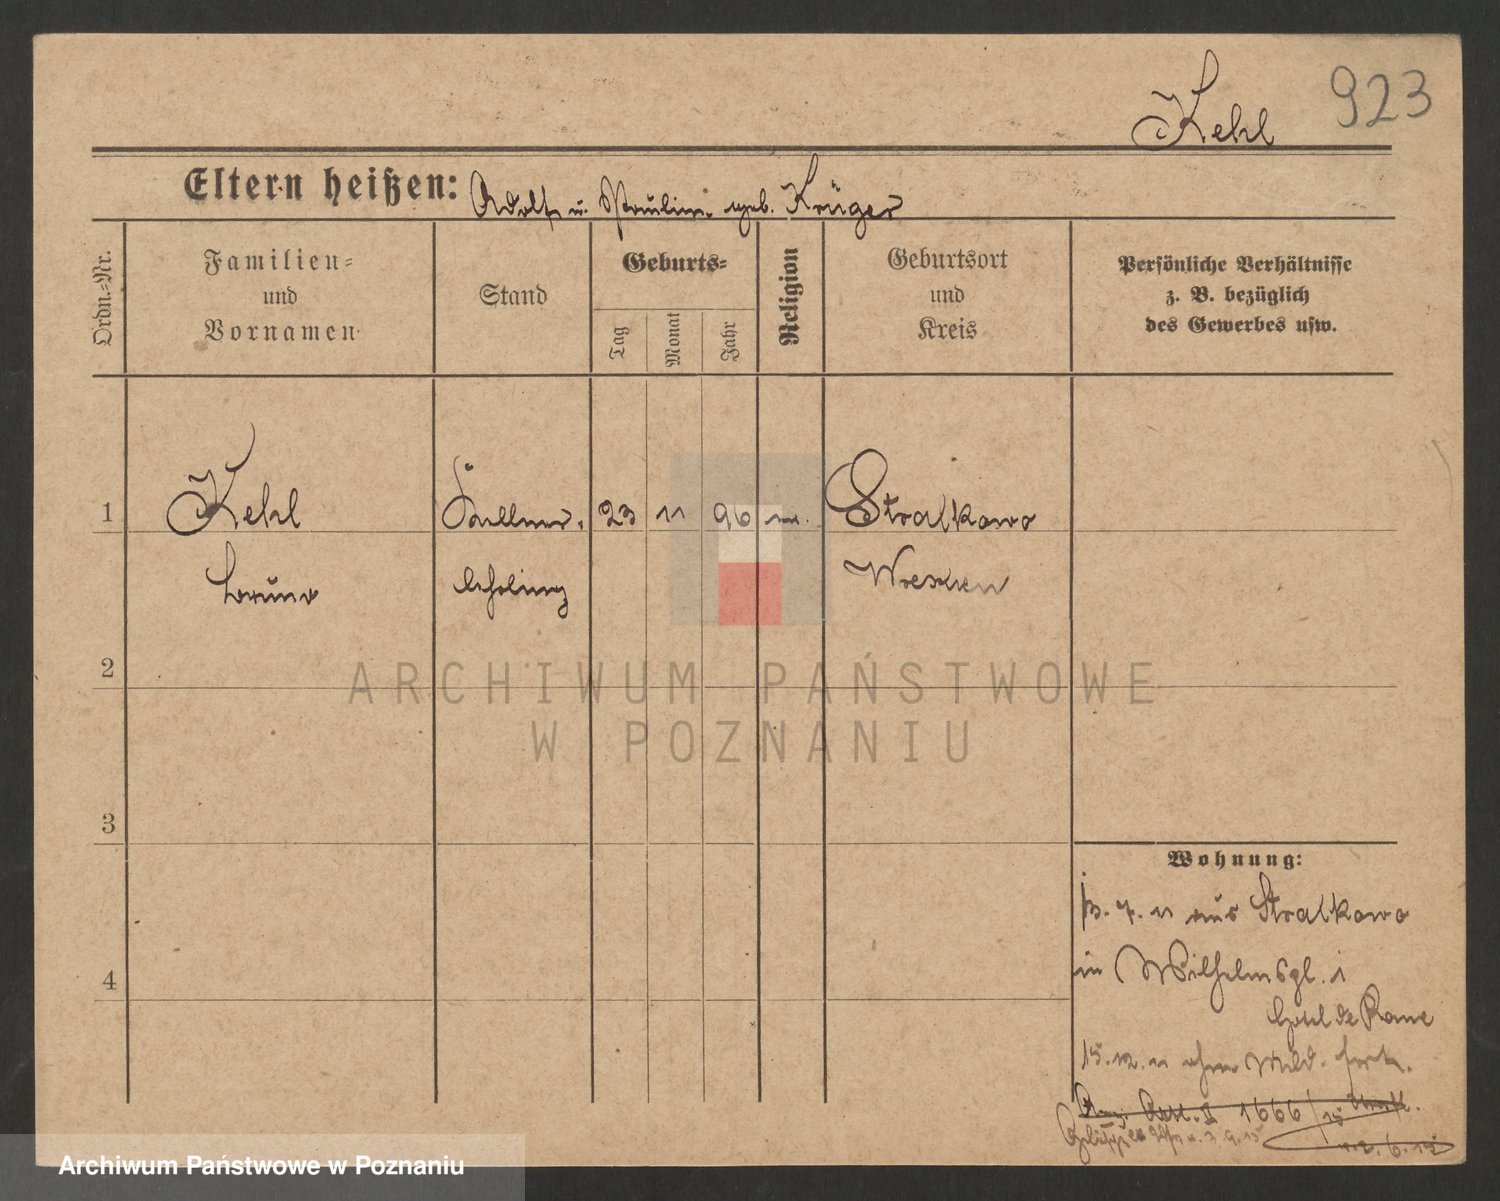 Kehl 923
Eltern heißen: Adolf u. Pauline geb. Krüger
Ordn.-Nr.
Familien-
und
Vornamen
Stand
Geburts-
Tag
Monat
Jahr
Religion
Geburtsort
und
Kreis
Persönliche Verhältnisse
z. B. bezüglich
des Gewerbes usw.
1 Kehl Kellner- 23 11 96 Stralkowo
Bruno lehrling Wreschen
2
3
4
Wohnung:
7. 11 aus Stralkowo
in Wilhelmspl. 1
Hotel de Rome
15.12.11 ohne Meld. fort.
1666/15
ARCHIWUM PAŃSTWOWE
W POZNANIU
Archiwum Państwowe w Poznaniu